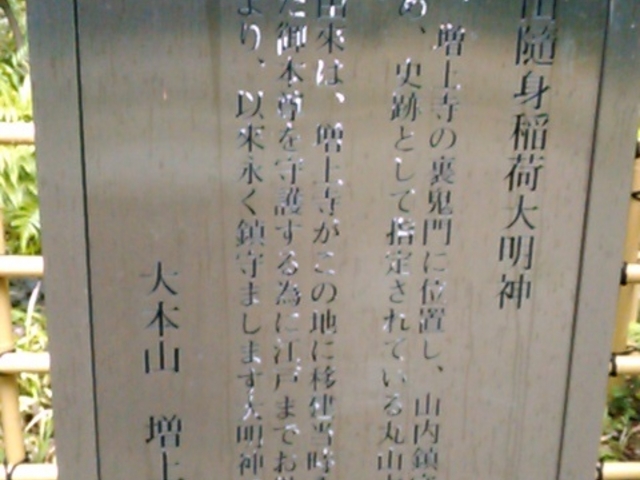 随身稲荷大明神
増上寺の裏鬼門に位置し、山内鎮守
め、史跡として指定されている丸山
由来は、増上寺がこの地に移建当時
た御本尊を守護する為に江戸までお
より、以来永く鎮守まします大明神
大本山 増上